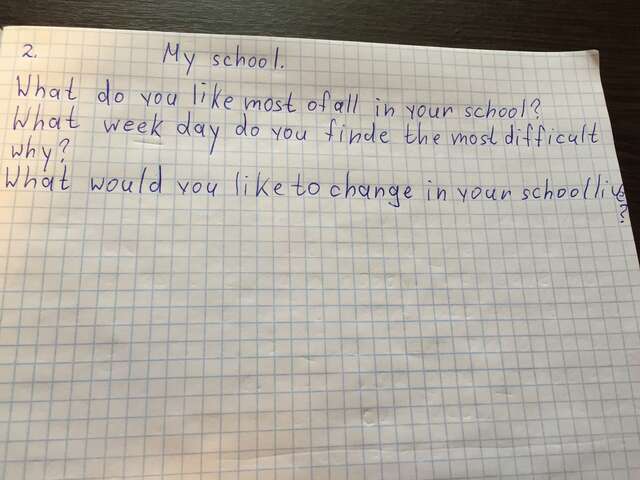 2. My school.
What do you like most of all in your school?
What week day do you finde the most difficult
why?
What would you like to change in your school live
?